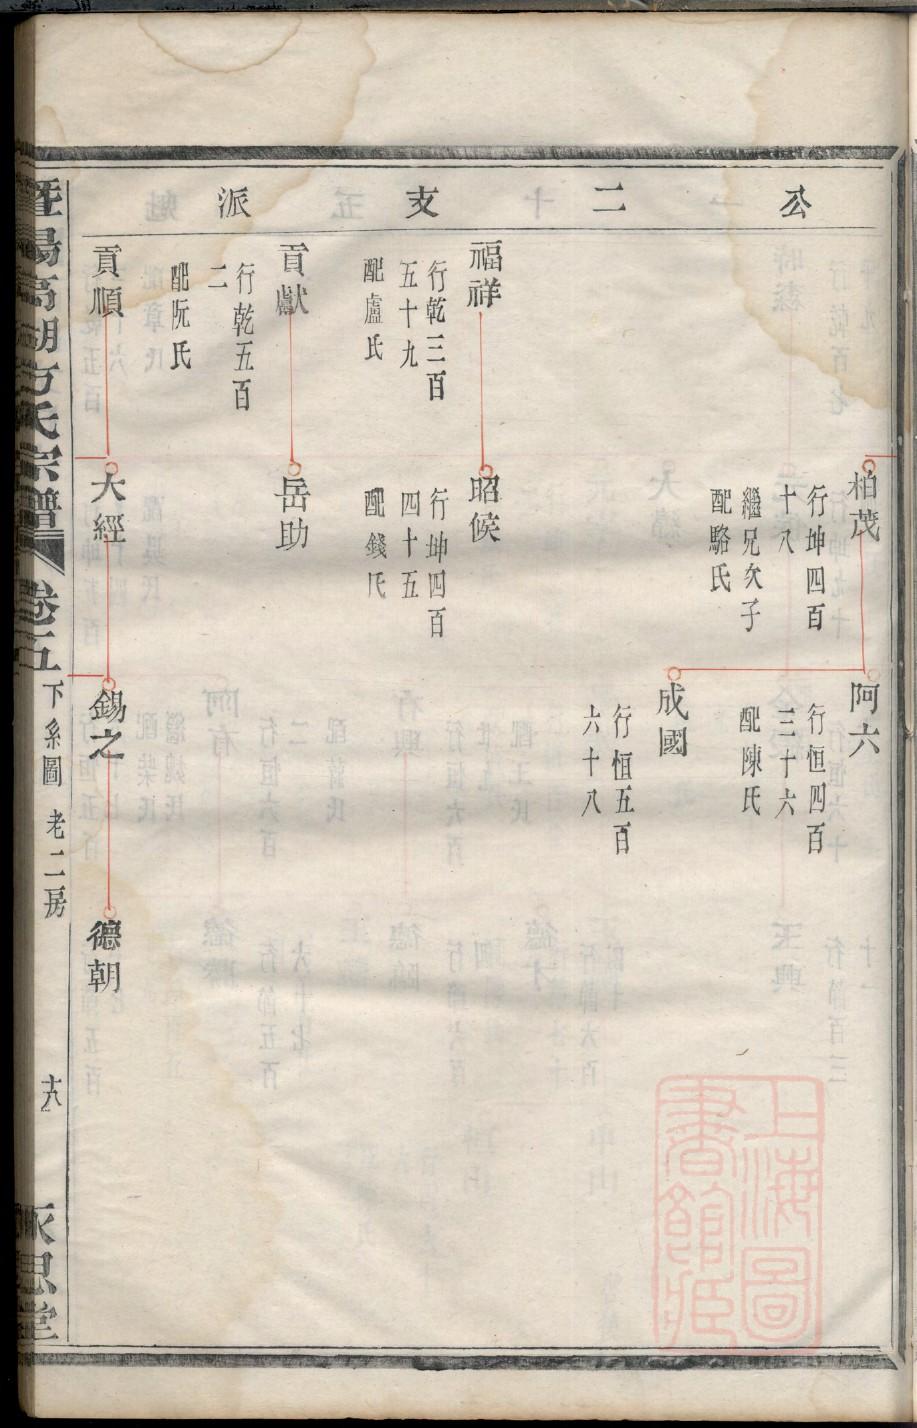 公二支派
柏茂
行坤四百
十八
繼兄次子
配駱氏
阿六
行恒四百
三十六
配陳氏
成國
行恒五百
六十八
福祥
行乾三百
五十九
配盧氏
昭候
行坤四百
四十五
配錢氏
貢獻
行乾五百
二
配阮氏
岳助
貢順
大經
錫之
德朝
暨陽高湖方氏宗譜
卷五
下系圖
老二房
十八
永思堂
上海圖
書館藏